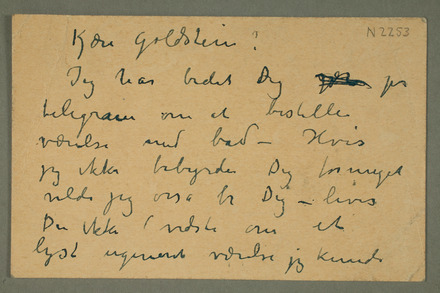 N2253
Kjære Goldstein!
Jeg har bedet Dig per
telegram om at bestille
værelse med bad – Hvis
jeg ikke bebyrder Dig formeget
vilde jeg osså be Dig –
Du ikke vidste om et
lyst ugenert værelse jeg kunde